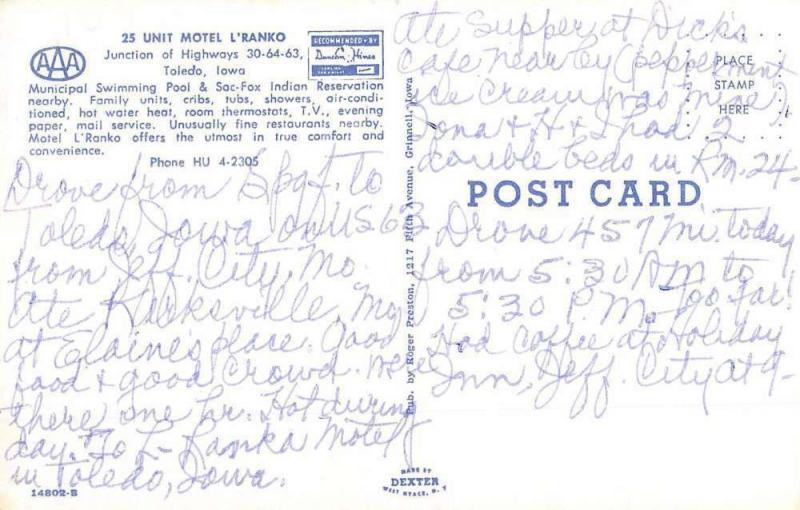 25 UNIT MOTEL L'RANKO
Junction of Highways 30-64-63,
Toledo, Iowa
AAA
RECOMMENDED BY
Duncan Hines
Municipal Swimming Pool & Sac-Fox Indian Reservation
nearby. Family units, cribs, tubs, showers, air-condi-
tioned, hot water heat, room thermostats, T.V., evening
paper, mail service. Unusually fine restaurants nearby.
Motel L'Ranko offers the utmost in true comfort and
convenience.
Phone HU 4-2305
Drove from Spgf. to
Toledo, Iowa on US 63
from Jeff. City, Mo.
Ate Hicksville, Mo
at Elaine's place. Good
food & good crowd. Were
there one hr. Hot during
day. To L-Ranka Motel
in Toledo, Iowa.
14802-B
Pub. by Roger Preston, 1217 Fifth Avenue, Grinnell, Iowa
MADE BY
DEXTER
WEST NYACK, N.Y.
Ate Supper at Dick's
Cafe nearby (peppermint
ice cream was mine)
Iona & H & I had 2
double beds in Rm. 24-
PLACE
STAMP
HERE
POST CARD
Drove 457 mi. today
from 5:30 AM to
5:30 P.M. so far!
Had coffee at Holiday
Inn, Jeff. City at 9-